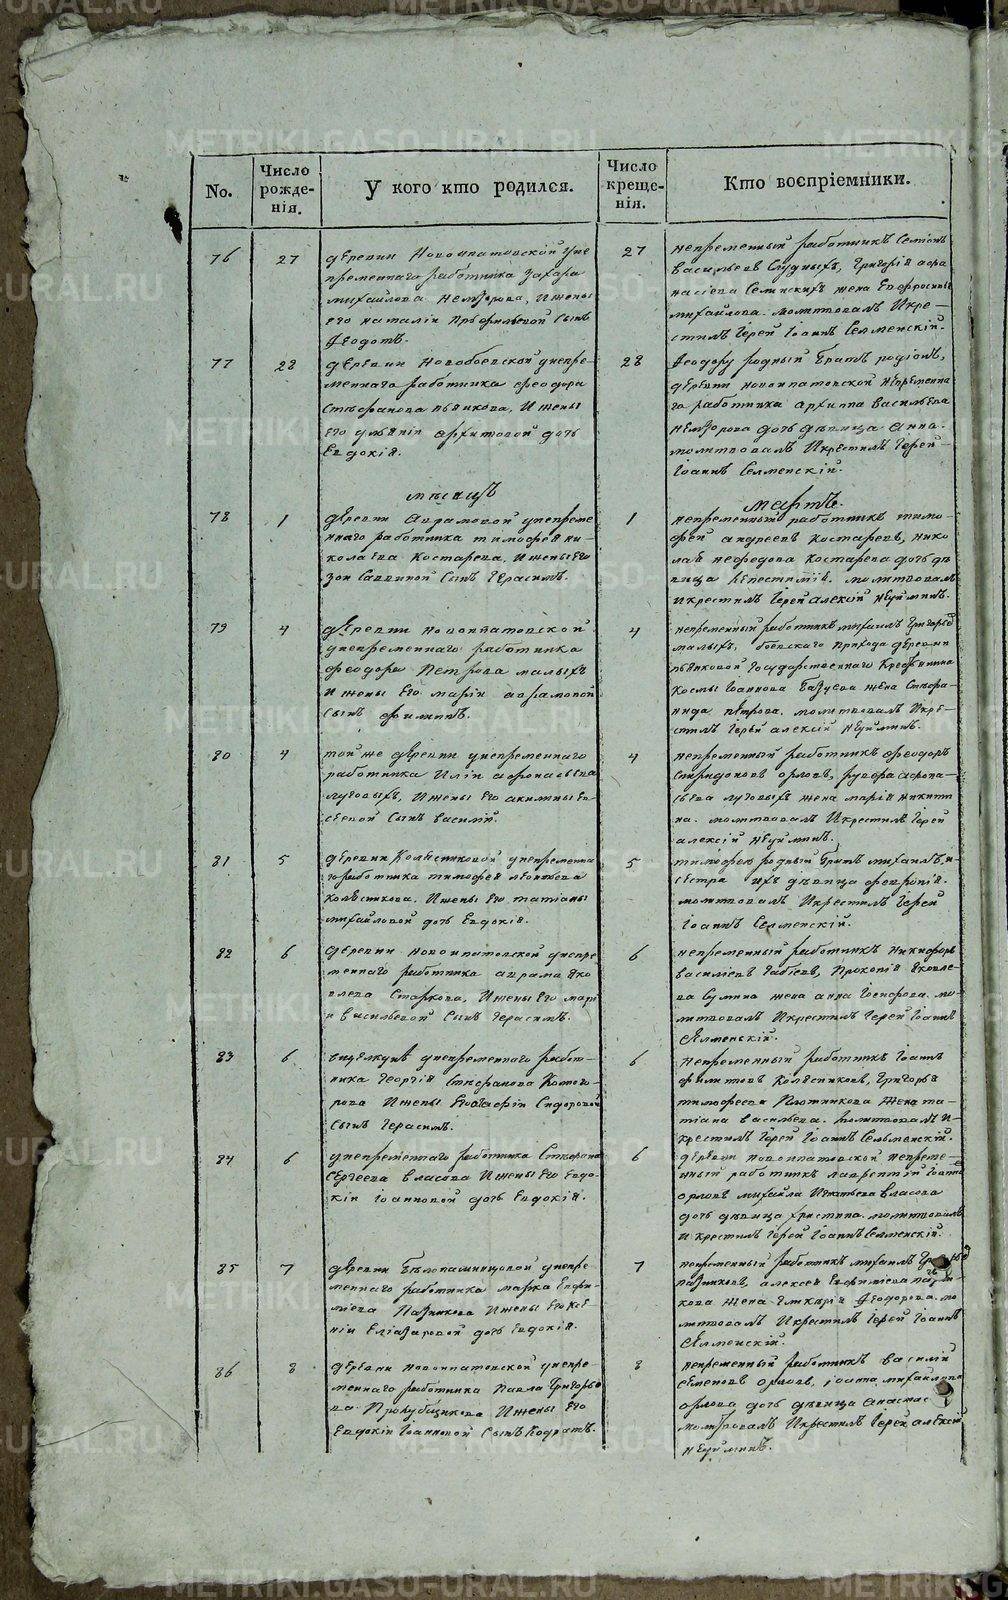 No.
Число рожденія.
У кого кто родился.
Число крещенія.
Кто воспріемники.
76
27
деревни Новоипатовской у не
пременнаго работника Захара
михайлова Немзорова, И жены
его наталіи сынъ
Ѳеодотъ.
27
непременный работникъ Семіонъ
васильевъ Григорія афо
насіева жена Евфросинья
михайлова. молитвовалъ И кре
стилъ Іерей Іоаннъ Селменскій.
77
28
деревни новобоевской у непре
меннаго работника феодора
Стефанова пьянкова, И жены
его архиповой дочь
Евдокія.
28
Ѳеодору родный братъ родіонъ,
деревни новоипатовской непременна
го работника архиппа васильева
немзорова дочь дѣвица анна.
молитвовалъ И крестилъ Іерей
Іоаннъ Селменскій.
мѣсяцъ
мартъ.
78
1
деревни аврамовой у непреме
ннаго работника тимофея ни
колаева Костарева, И жены его
зои Саввиной Сынъ Герасимъ.
1
непременный работникъ тимо
фей андреевъ костаревъ, нико
лая нефодова костарева дочь дѣ
вица молитвовалъ
и крестилъ Іерей алексій неуйминъ.
79
4
деревни новоипатовской
у непременнаго работника
феодора Петрова малыхъ
И жены его маріи аврамовой
Сынъ филипъ.
4
непременный работникъ михаилъ григорьевъ
малыхъ, боевского прихода деревни
пьянковой Государственнаго крестьянина
космы Іоаннова жена Стефа
нида петрова. молитвовалъ И кре
стилъ Іерей алексій неуйминъ.
80
4
той же деревни у непременнаго
работника Иліи афонасьева
луговыхъ, И жены его акилины ев
сеевой Сынъ василій.
4
непременный работникъ феодоръ
спиридоновъ орловъ, афона
сьева луговыхъ жена марія никити
на. молитвовалъ И крестилъ Іерей
алексій неуйминъ.
81
5
деревни Колясниковой у непременна
го работника тимофея леонтьева
колясникова. И жены его татіаны
михайловой дочь Евдокія.
5
тимофею родный братъ михаилъ, и
сестра ихъ дѣвица февронія.
молитвовалъ И крестилъ Іерей
Іоаннъ Селменскій.
82
6
деревни новоипатовской у непре
меннаго работника аврама яко
влева Старкова, И жены его мари
и васильевой Сынъ Герасимъ.
6
непременный работникъ никифоръ
василіевъ Прокопія яковле
ва Сумина жена анна Іосифова. мо
литвовалъ И крестилъ Іерей Іоаннъ
Селменскій.
83
6
у непременнаго работ
ника Георгія Стефанова комого
рова И жены его агафіи Сидоровой
Сынъ Герасимъ.
6
непременный работникъ Іоаннъ
филиповъ колясниковъ, григорья
тимофеева плотникова жена та
тіана васильева. молитвовалъ и
крестилъ Іерей Іоаннъ Сельменскій.
84
6
у непременнаго работника Стефана
Сергеева власова И жены его Евдо
кіи Іоанновой дочь Евдокія.
6
деревни новоипатовской непреме
нный работникъ лаврентій
орловъ михайла Игнатьева власова
дочь дѣвица христина. молитвовалъ
и крестилъ Іерей Іоаннъ Селменскій.
85
7
деревни у непре
меннаго работника марка Ефи
міева И жены его Ксе
ніи Еліазаровой дочь Евдокія.
7
непременный работникъ михаилъ
алексея Евфиміева
кова жена Гликерія Ѳеодорова. мо
литвовалъ И крестилъ Іерей Іоаннъ
Селменскій.
86
8
деревни новоипатовской у непре
меннаго работника Павла Григорье
ва И жены его
Евдокіи Іоанновой Сынъ Кодратъ.
8
непременный работникъ василій
Семеновъ орловъ, Іоанна михайлова
орлова дочь дѣвица
молитвовалъ И крестилъ Іерей алексій
неуйминъ.
METRIKI.GASO-URAL.RU